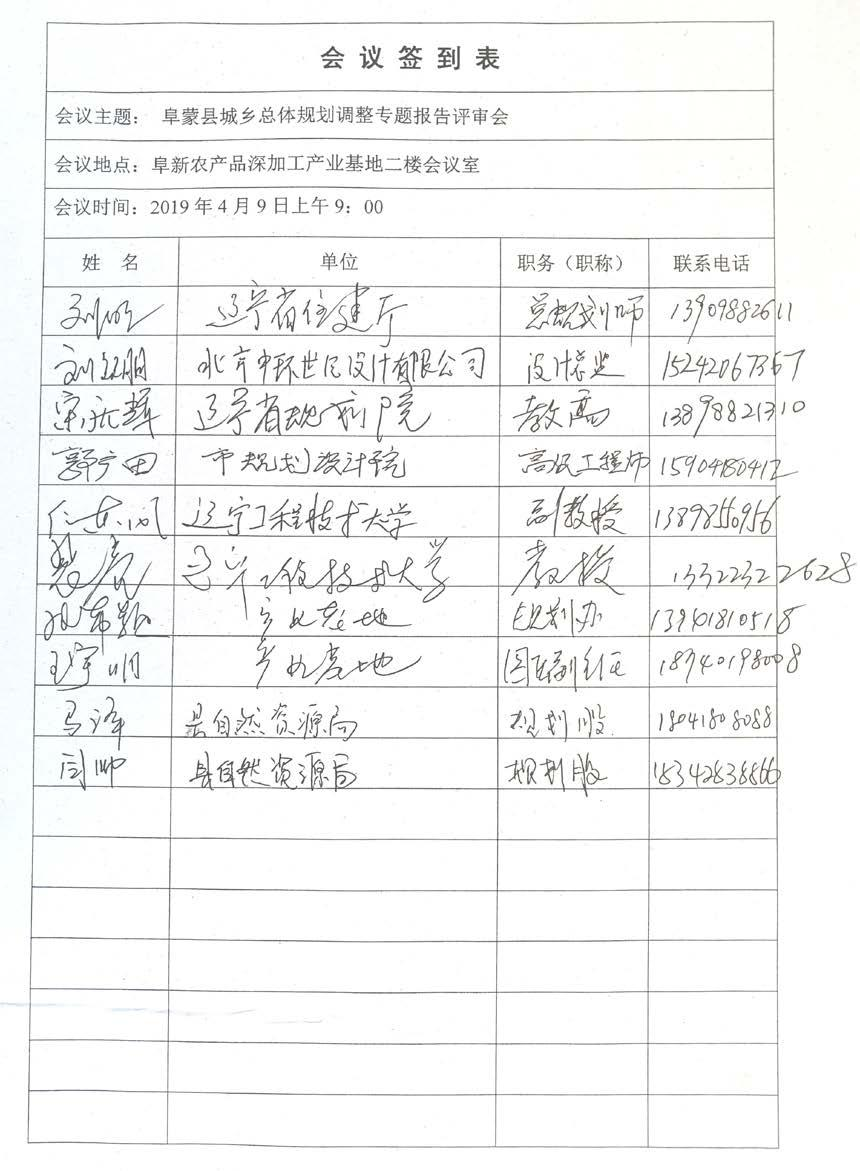 会 议 签 到 表
会议主题： 阜蒙县城乡总体规划调整专题报告评审会
会议地点：阜新农产品深加工产业基地二楼会议室
会议时间：2019 年 4 月 9 日上午 9：00
姓 名 单位 职务（职称） 联系电话
刘 辽宁省住建厅 总规划师 13909882611
刘 明 北京中环世纪设计有限公司 设计总监 15242067367
宋 辉 辽宁省规划院 教高 13898821310
郭广田 市规划设计院 高级工程师 15904180412
任东风 辽宁工程技术大学 副教授 13898550956
辽宁工程技术大学 教授 13322322628
产业基地 规划办 13941810518
王宇明 产业基地 18740198008
马泽 县自然资源局 规划股 18041808088
闫帅 县自然资源局 规划股 18342838866